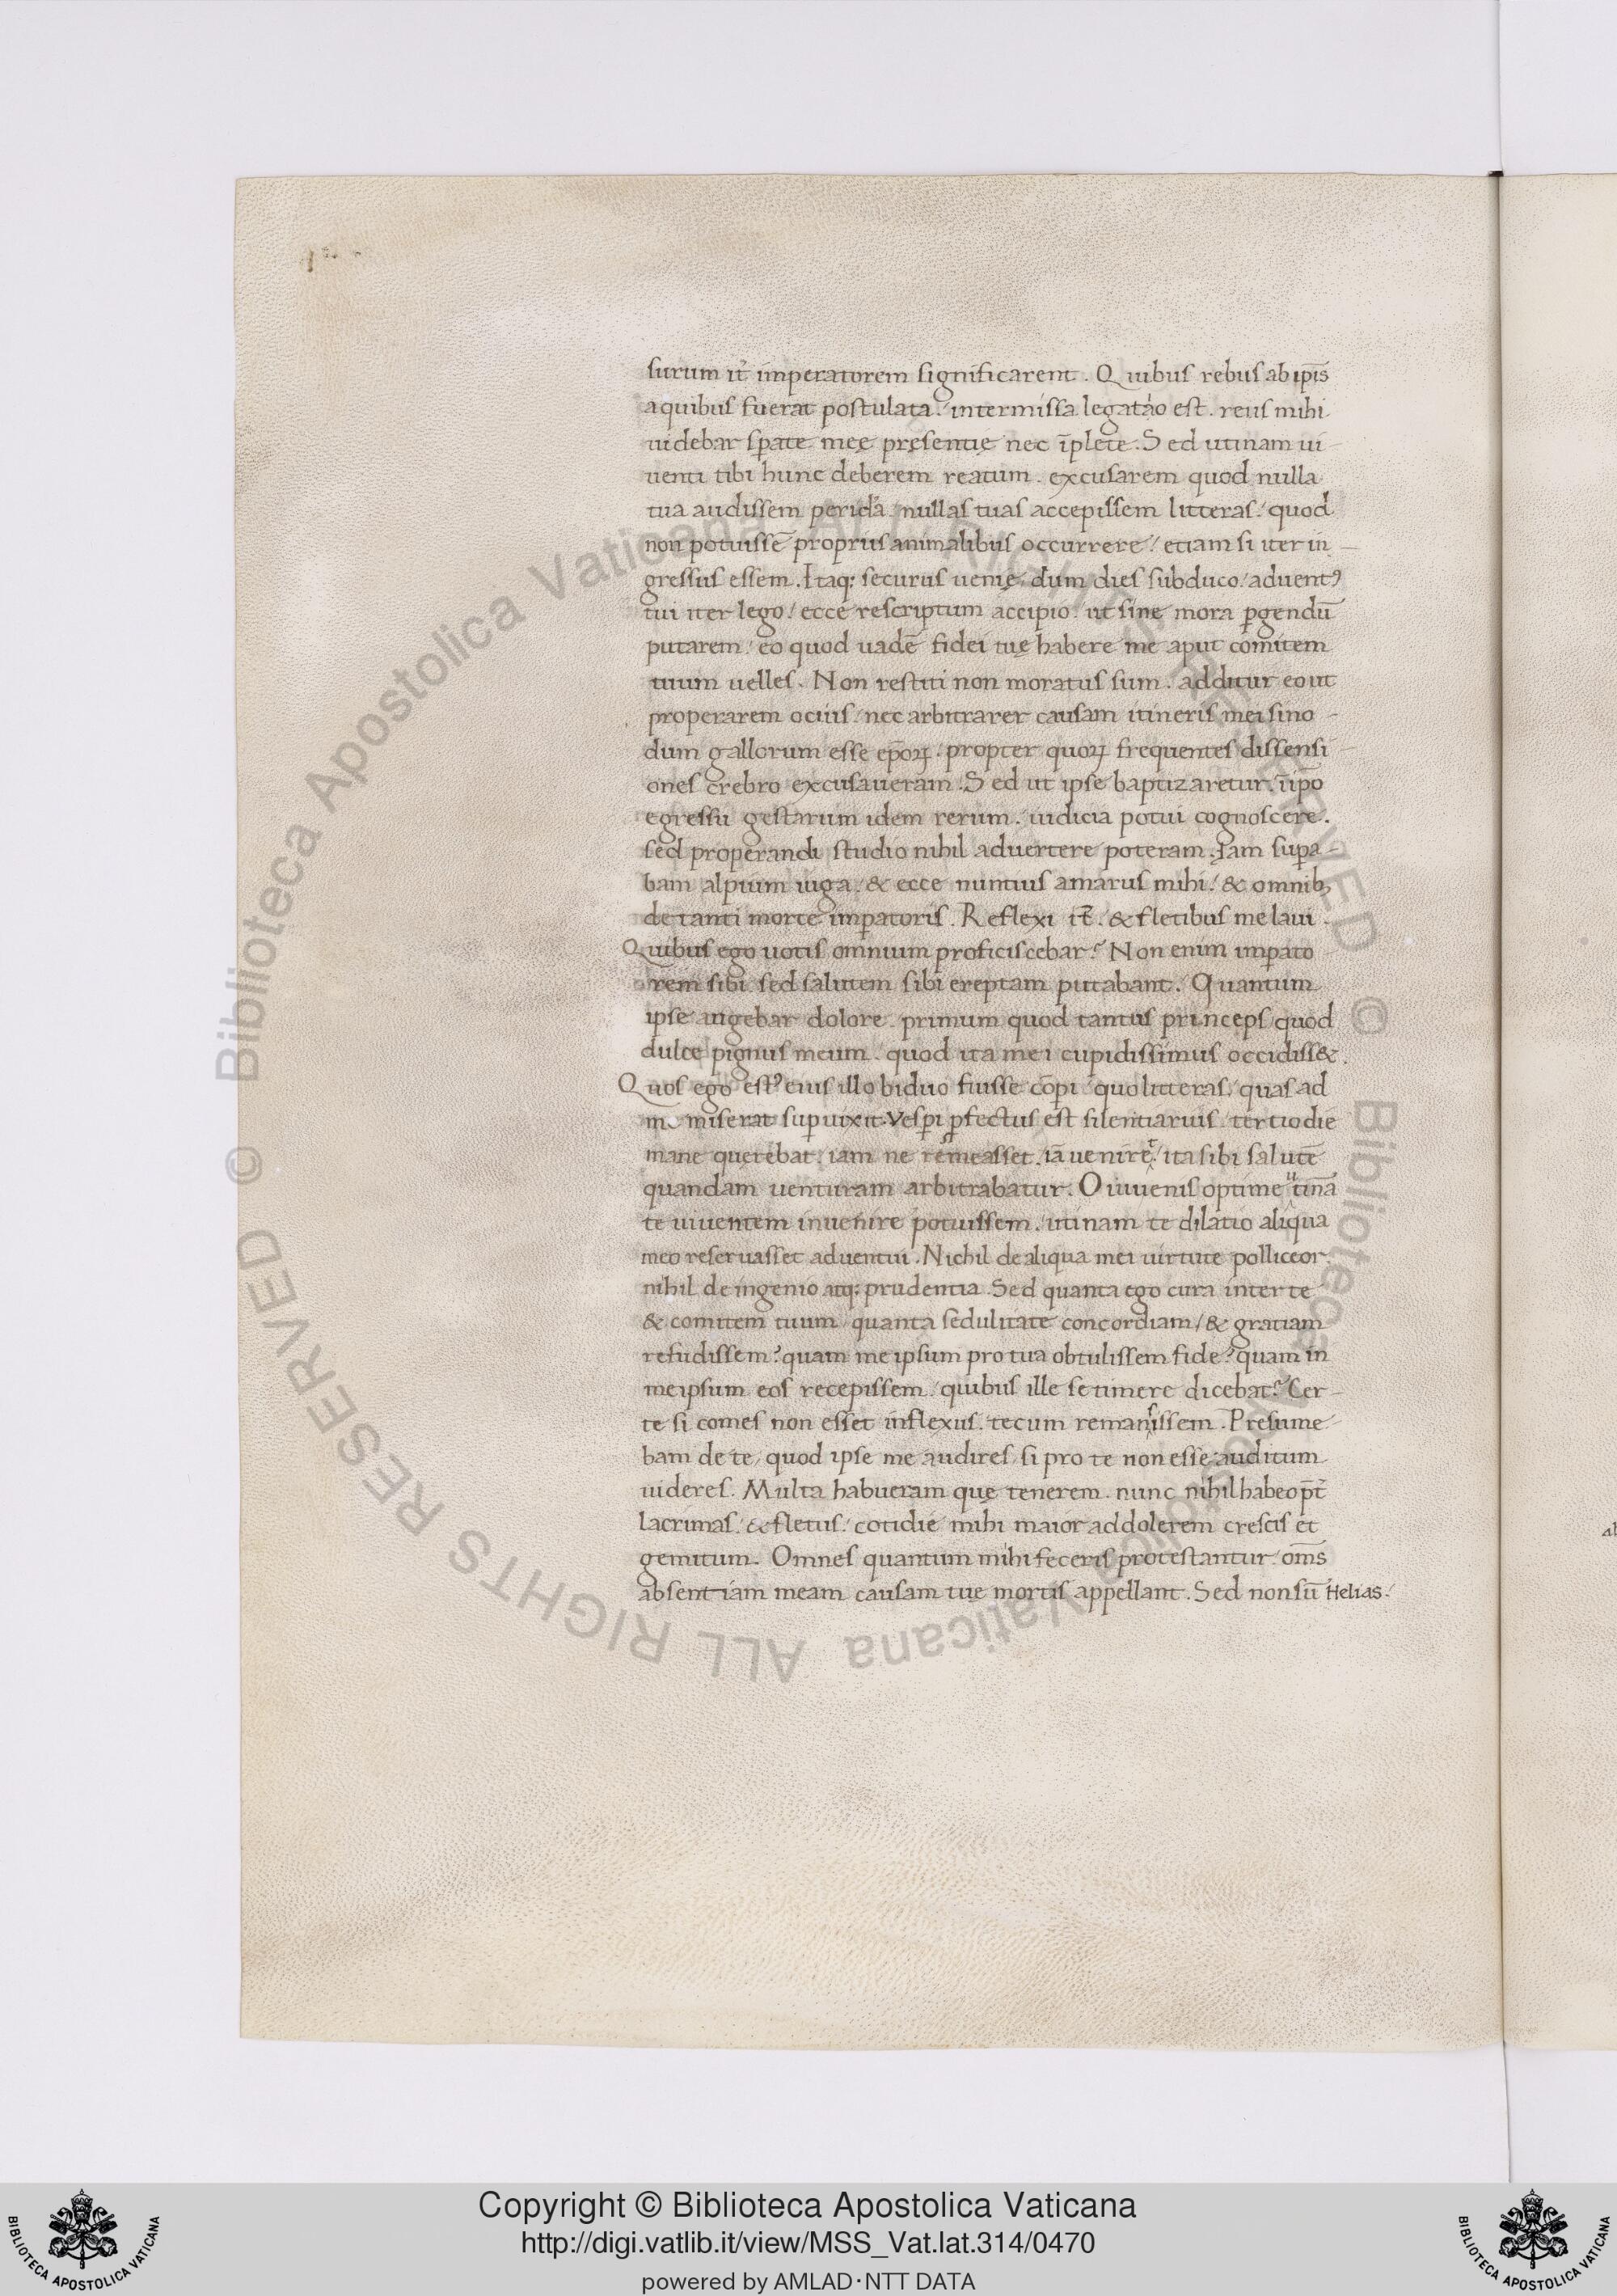 surum it̄ imperatorem significarent. Quibus rebus ab ip̄is
a quibus fuerat postulata / intermissa legatio est. reus mihi
uidebar sp̄ate meę pręsentię nec īplete. Sed utinam ui
uenti tibi hunc deberem reatum. excusarem quod nulla
tua audissem pericl̄a / nullas tuas accepissem litteras / quod
non potuissē propriis animalibus occurrere / etiam si iter in
gressus essem. Itaq: securus uenię. dum dies subduco / aduentꝰ
tui iter lego / ecce rescriptum accipio. ut sine mora ꝑgendū
putarem / eo quod uadē fidei tuę habere me aput comitem
tuum uelles. Non restiti non moratus sum. additur eo ut
properarem ocius / nec arbitrarer causam itineris mei sino
dum gallorum esse ep̄oꝝ. propter quoꝝ frequentes dissensi
ones crebro excusaueram. Sed ut ipse baptizaretur. īip̄o
egressu gestarum idem rerum. iudicia potui cognoscere.
sed properandi studio nihil aduertere poteram. Iam suꝑa
bam alpium iuga / & ecce nuntius amarus mihi / & omnibꝫ
de tanti morte imꝑatoris. Reflexi it̄ / & fletibus me laui.
Quibus ego uotis omnium proficiscebar? Non enim imꝑato
rem sibi sed salutem sibi ereptam putabant. Quantum
ipse angebar dolore. primum quod tantus princeps / quod
dulce pignus meum / quod ita mei cupidissimus occidiss&.
Quos ego estꝰ eius illo biduo fuisse cōꝑi / quo litteras / quas ad
m miserat suꝑuixit. Vesꝑi ꝓfectus est silentiarius / tertio die
mane quęrebat. iam ne remeasset. iā uenirēt / ita sibi salutē
quandam uenturam arbitrabatur. O iuuenis optime utinā
te uiuentem inuenire potuissem. utinam te dilatio aliqua
meo reseruasset aduentui. Nichil de aliqua mei uirtute polliceor.
nihil de ingenio atq: prudentia. Sed quanta ego cura inter te
& comitem tuum / quanta sedulitate concordiam / & gratiam
refudissem? quam me ipsum pro tua obtulissem fide? quam in
me ipsum eos recepissem / quibus ille se timere dicebat? Cer
te si comes non esset inflexus. tecum remansissem. Presume
bam de te / quod ipse me audires / si pro te non esse auditum
uideres. Multa habueram quę tenerem. nunc nihil habeo p̄t̄
lacrimas / & fletus / cotidie mihi maior ad dolerem crescis et
gemitum. Omnes quantum mihi feceris protestantur / om̄s
absentiam meam causam tuę mortis appellant. Sed non sū Helias.
© Biblioteca Apostolica Vaticana ALL RIGHTS RESERVED © Biblioteca Apostolica Vaticana ALL RIGHTS RESERVED
Copyright © Biblioteca Apostolica Vaticana
http://digi.vatlib.it/view/MSS_Vat.lat.314/0470
powered by AMLAD·NTT DATA
BIBLIOTECA APOSTOLICA VATICANA
BIBLIOTECA APOSTOLICA VATICANA